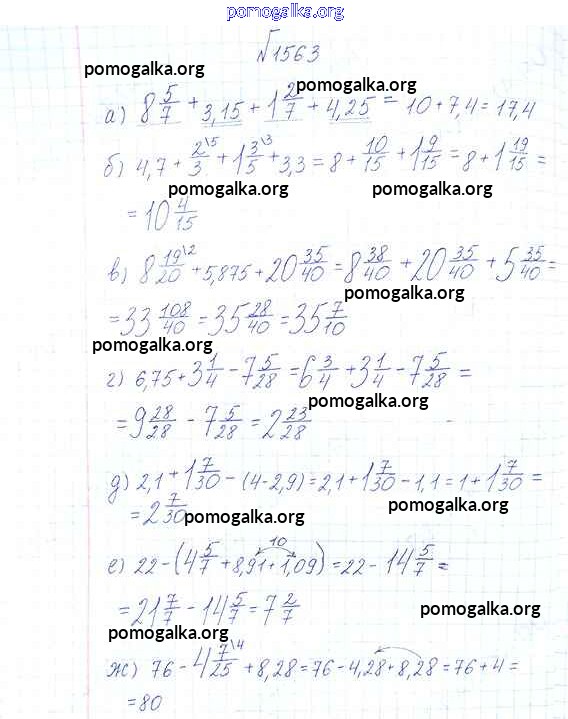 pomogalka.org
№1563
pomogalka.org
pomogalka.org
а) 8 5/7 + 3,15 + 1 2/7 + 4,25 = 10 + 7,4 = 17,4
б) 4,7 + 2/3 \5 + 1 3/5 \3 + 3,3 = 8 + 10/15 + 1 9/15 = 8 + 1 19/15 =
pomogalka.org pomogalka.org
= 10 4/15
в) 8 19/20 \2 + 5,875 + 20 35/40 = 8 38/40 + 20 35/40 + 5 35/40 =
pomogalka.org
= 33 108/40 = 35 28/40 = 35 7/10
pomogalka.org
г) 6,75 + 3 1/4 - 7 5/28 = 6 3/4 + 3 1/4 - 7 5/28 =
pomogalka.org
= 9 28/28 - 7 5/28 = 2 23/28
д) 2,1 + 1 7/30 - (4 - 2,9) = 2,1 + 1 7/30 - 1,1 = 1 + 1 7/30 =
pomogalka.org
= 2 7/30
pomogalka.org
10
е) 22 - (4 5/7 + 8,91 + 1,09) = 22 - 14 5/7 =
= 21 7/7 - 14 5/7 = 7 2/7
pomogalka.org
pomogalka.org
ж) 76 - 4 7/25 \4 + 8,28 = 76 - 4,28 + 8,28 = 76 + 4 =
= 80